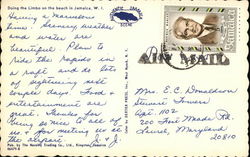 Doing the Limbo on the beach in Jamaica, W. I.
Having a marvelous
time. Scenery, weather
and water are
beautiful. Plan to
ride the rapids in
a raft and do lots
of sightseeing next
couple days. Food +
entertainment are
great. Thanks for
being so nice to all of
us + for meeting us at
the airport.
AIR MAIL
Jamaica
Mrs. E. C. Donaldson
Stewart Towers
Apt. 1102
200 Fort Meade Rd.
Laurel, Maryland
20810
Pub. by The Novelty Trading Co., Ltd., Kingston, Jamaica